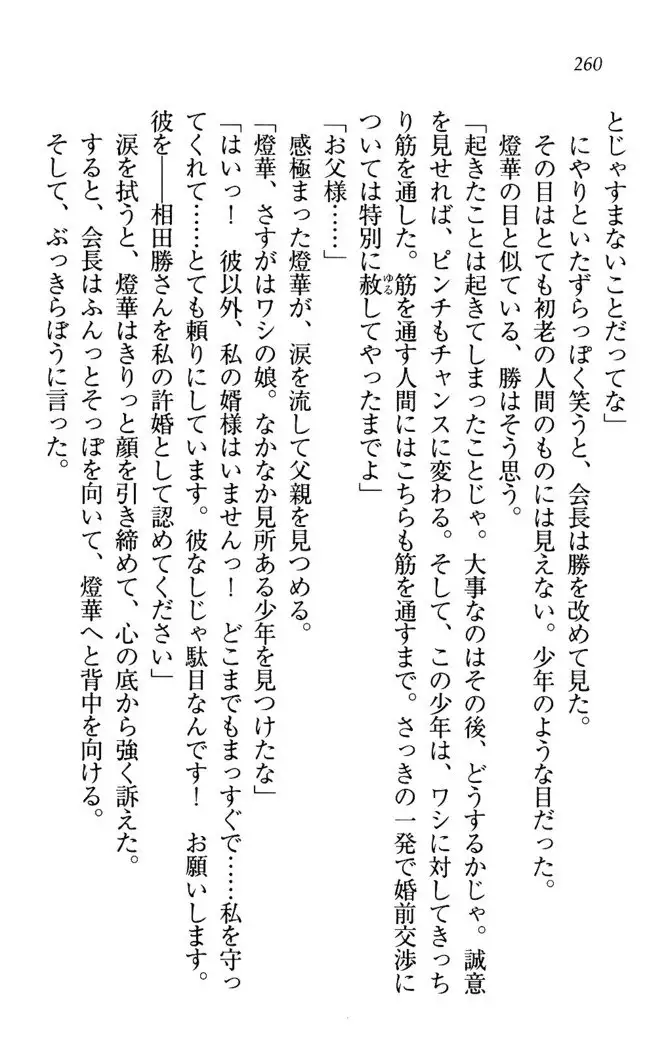 260
とじゃすまないことだってな」
にやりといたずらっぽく笑うと、会長は勝を改めて見た。
その目はとても初老の人間のものには見えない。少年のような目だった。
燈華の目と似ている、勝はそう思う。
「起きたことは起きてしまったことじゃ。大事なのはその後、どうするかじゃ。誠意
を見せれば、ピンチもチャンスに変わる。そして、この少年は、ワシに対してきっち
り筋を通した。筋を通す人間にはこちらも筋を通すまで。さっきの一発で婚前交渉に
ついては特別に赦ゆるしてやったまでよ」
「お父様……」
感極まった燈華が、涙を流して父親を見つめる。
「燈華、さすがはワシの娘。なかなか見所ある少年を見つけたな」
「はいっ！　彼以外、私の婿様はいませんっ！　どこまでもまっすぐで……私を守っ
てくれて……とても頼りにしています。彼なしじゃ駄目なんです！　お願いします。
彼を――相田勝さんを私の許婚として認めてください」
涙を拭うと、燈華はきりっと顔を引き締めて、心の底から強く訴えた。
すると、会長はふんっとそっぽを向いて、燈華へと背中を向ける。
そして、ぶっきらぼうに言った。